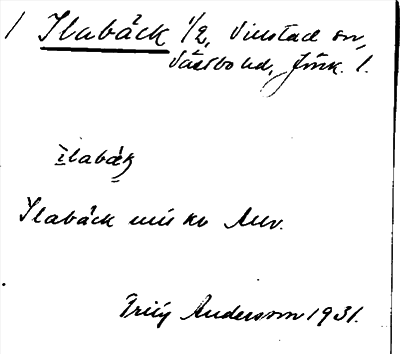 1 Ilabäck 1/2, Vinstad sn,
Västbo hd, Jönk. l.
ilabäk
Ilabäck
Andersson 1931.